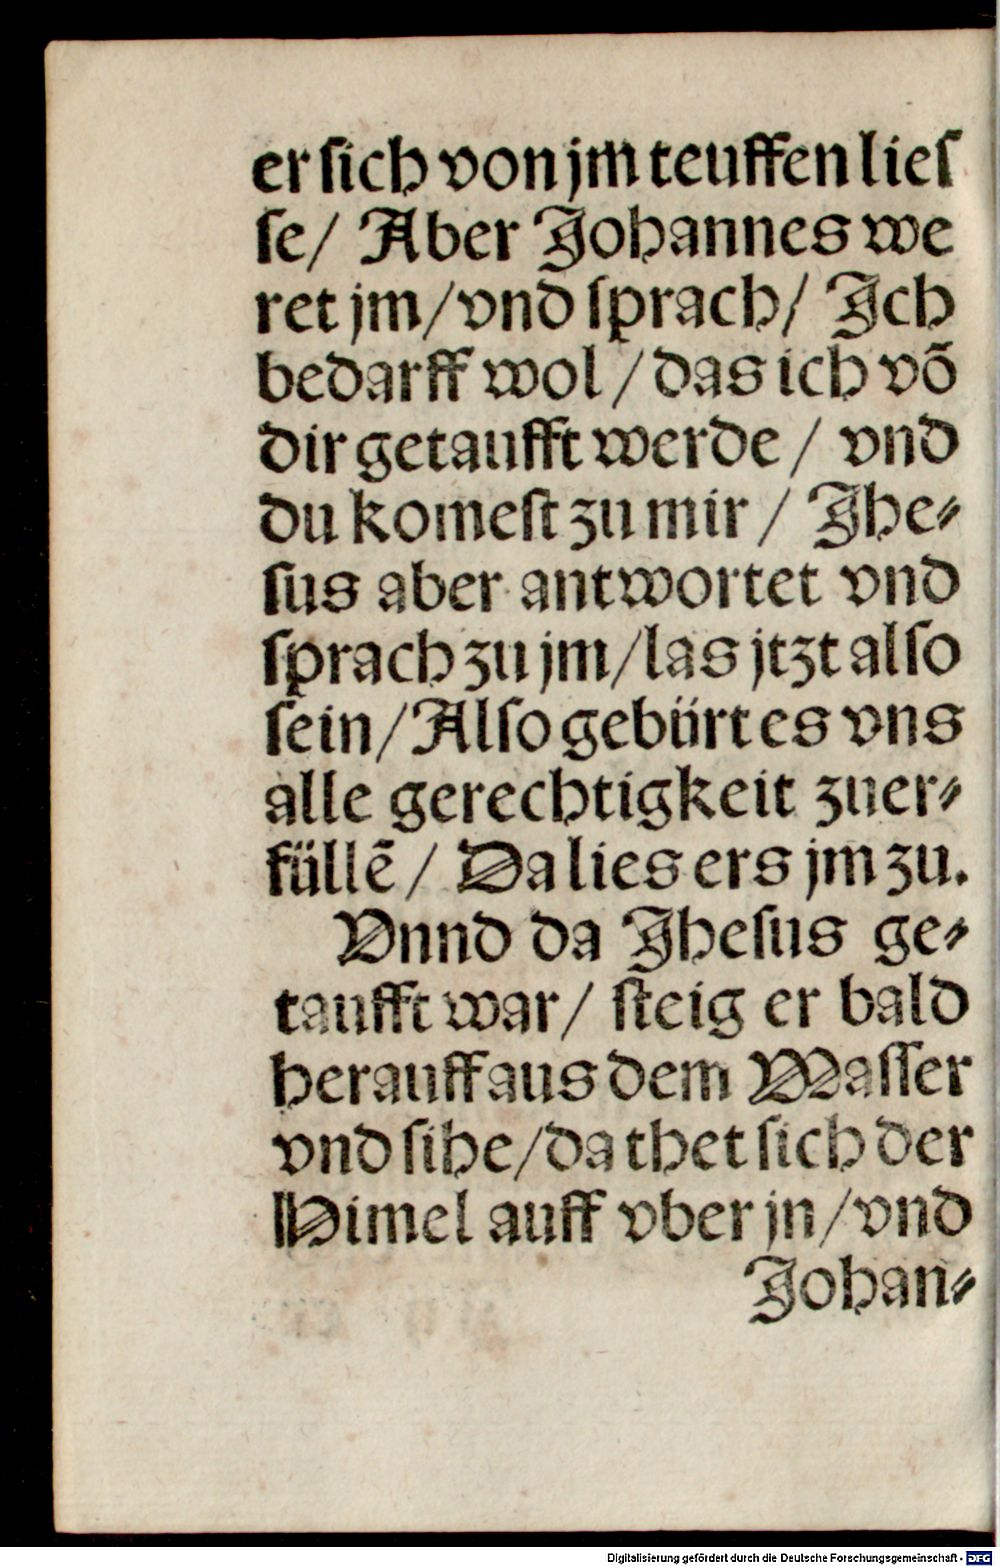 er ſich von jm teuffen lieſ
ſe/ Aber Johannes we
ret jm/vnd ſprach/ Jch
bedarff wol/das ich võ
dir getaufft werde/ vnd
du komeſt zu mir/ Jhe⸗
ſus aber antwortet vnd
ſprach zu jm/las jtzt alſo
ſein/Alſo gebürt es vns
alle gerechtigkeit zuer⸗
füllẽ/ Da lies ers jm zu.
Vnnd da Jheſus ge⸗
taufft war/ ſteig er bald
herauff aus dem Waſſer
vnd ſihe/da thet ſich der
Himel auff vber jn/vnd
Johan⸗
Digitalisierung gefördert durch die Deutsche Forschungsgemeinschaft - DFG